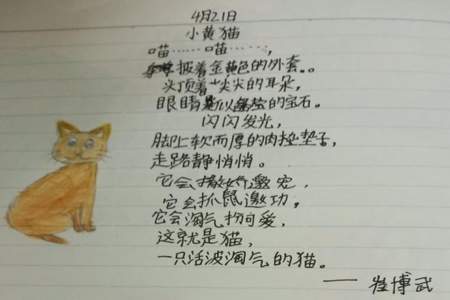 4月21日
小黄猫
喵……喵……,
披着金黄色的外套。
头顶着尖尖的耳朵,
眼睛的宝石。
闪闪发光,
脚上软而厚的肉垫垫子,
走路静悄悄。
它会邀宠,
它会抓鼠邀功。
它会淘气扮可爱,
这就是猫,
一只活波淘气的猫。
——崔博武